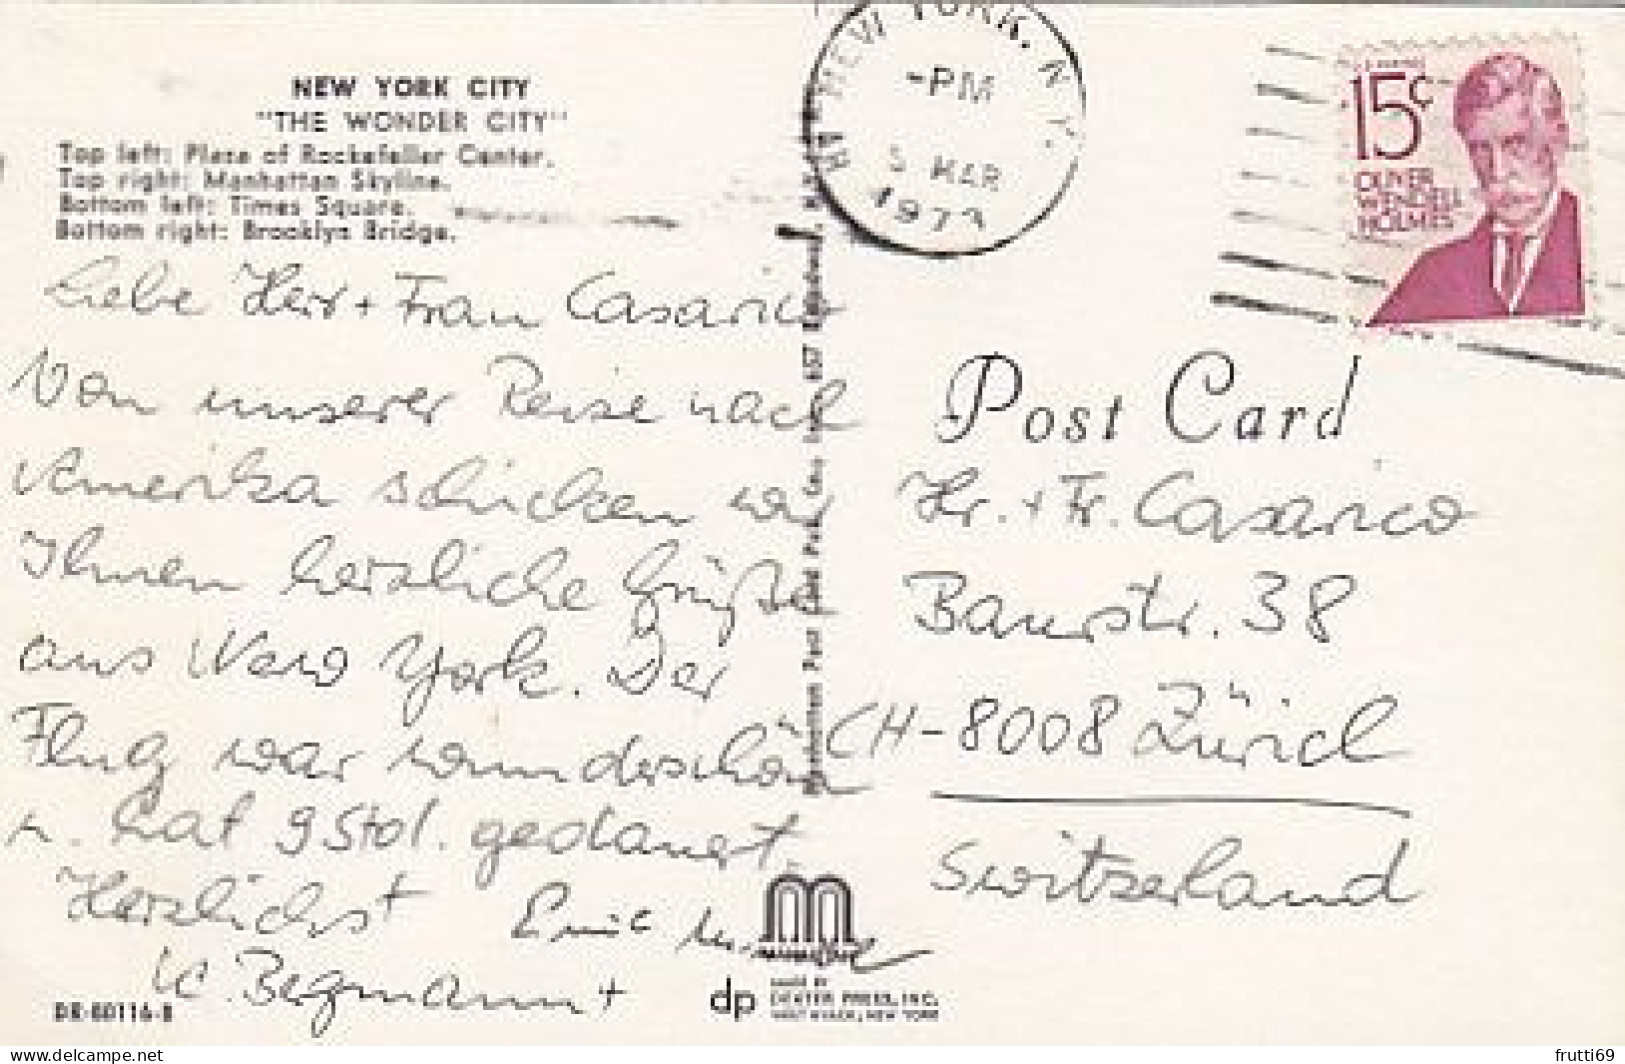 NEW YORK CITY
"THE WONDER CITY"
Top left: Plaza of Rockefeller Center.
Top right: Manhattan Skyline.
Bottom left: Times Square.
Bottom right: Brooklyn Bridge.
Liebe Herr + Frau Casarico
Von unserer Reise nach
Amerika schicken wir
Ihnen herzliche Grüße
aus New York. Der
Flug war wunderschön
u. hat 9 Std. gedauert.
Herzlichst Emil
K. Bergmann +
DR-60116-B
Manhattan Post Card Pub. Co., Inc., 657 Broadway, N.Y.
dp
MADE BY
DEXTER PRESS, INC.
WEST NYACK, NEW YORK
NEW YORK, N.Y.
-PM
5 MAR
1973
15¢
OLIVER
WENDELL
HOLMES
Post Card
Hr. + Fr. Casarico
Baurstr. 38
CH-8008 Zürich
Switzerland
frutti69